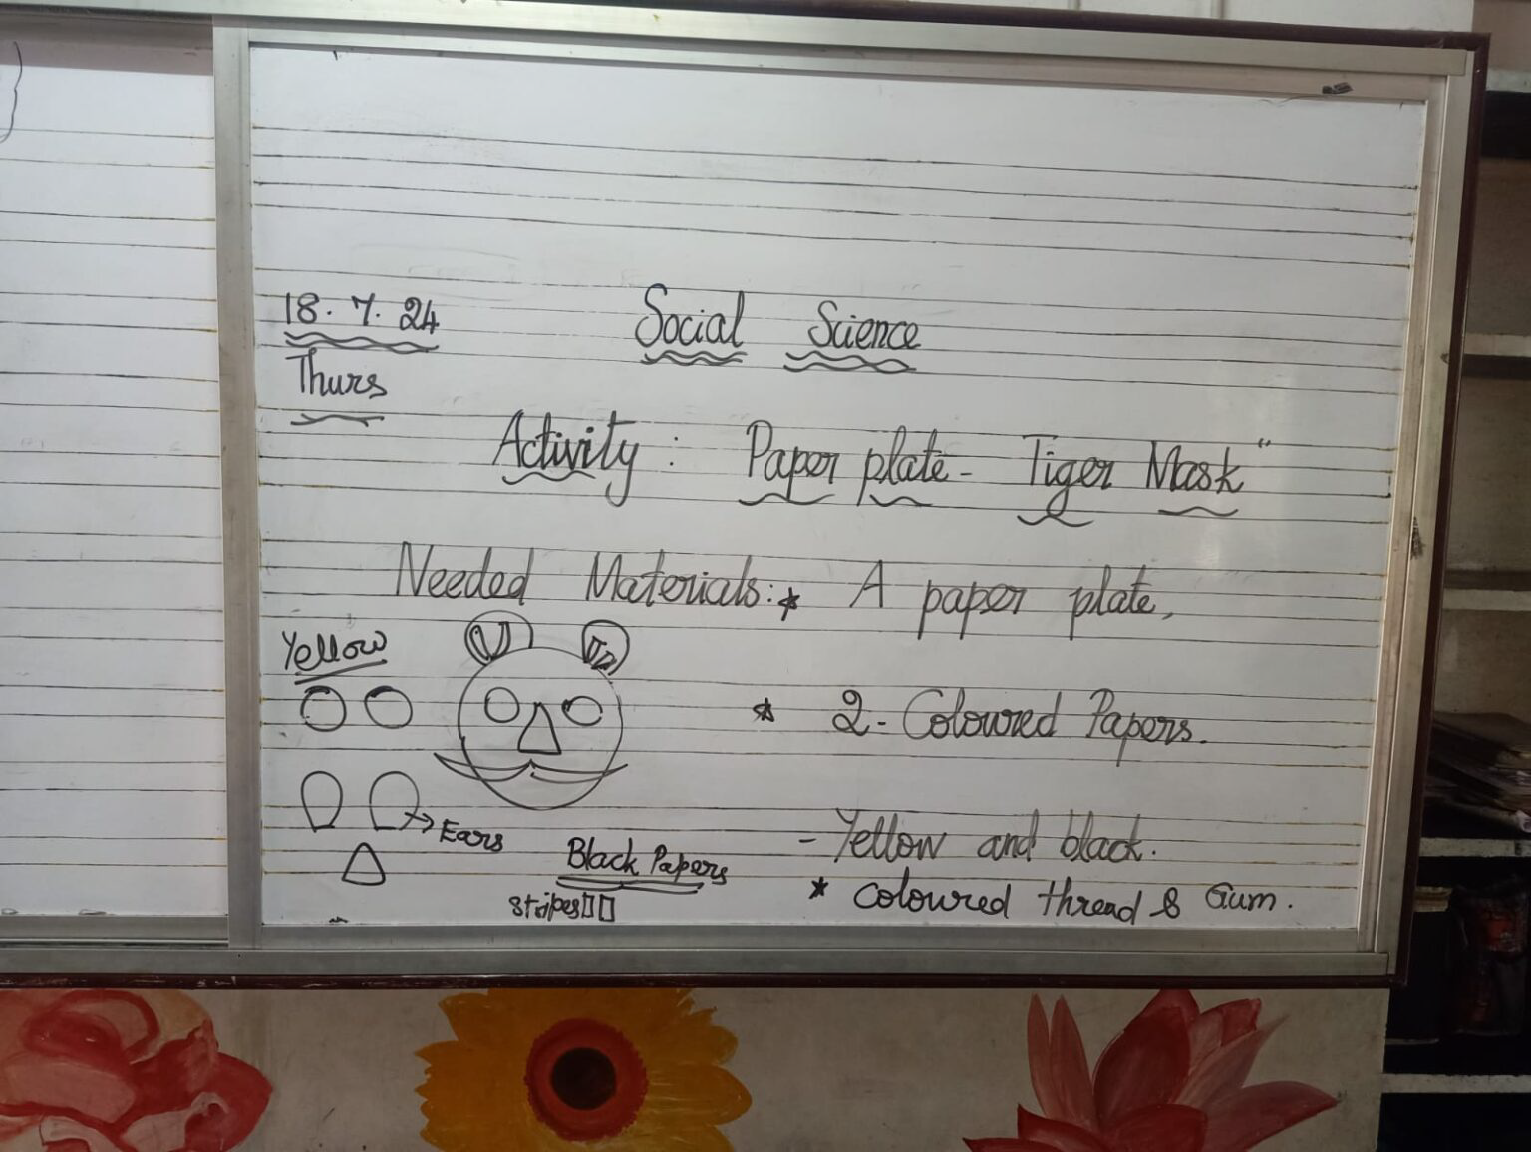 18. 7. 24
Social Science
Thurs
Activity : Paper plate - Tiger Mask"
Needed Materials: * A paper plate,
Yellow
* 2 - Coloured Papers.
Ears
- Yellow and black.
Black Papers
stripes
* coloured thread & Gum.